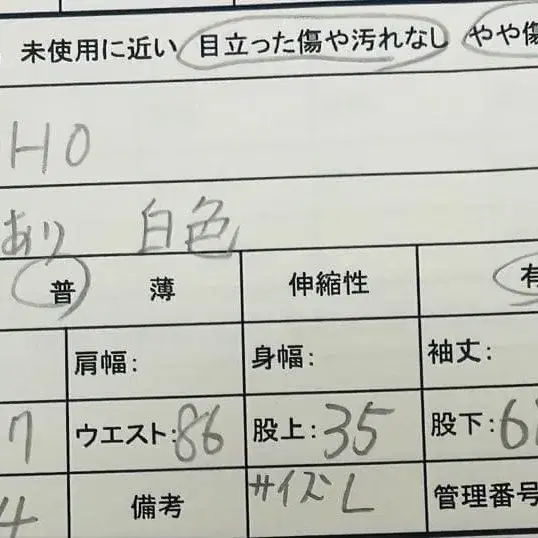 未使用に近い 目立った傷や汚れなし やや傷
HO
あり 白色
普 薄 伸縮性 有
肩幅: 身幅: 袖丈:
7 ウエスト:86 股上:35 股下:6
4 備考 サイズL 管理番号